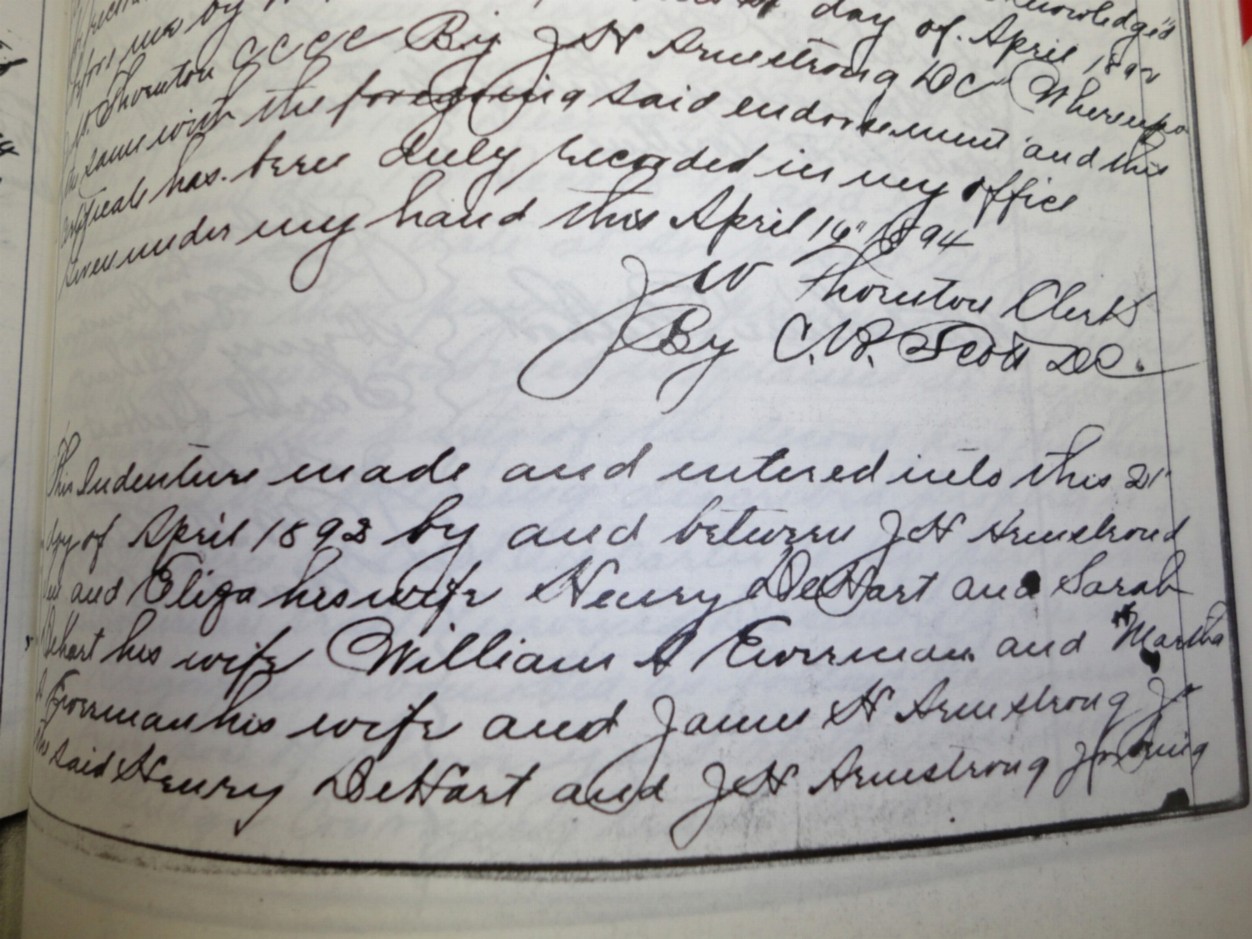 day of April 1892
Thornton CCCC By J H Armstrong DC Whereupo
same with the foregoing said endorsement and this
has been duly recorded in my office
under my hand this April 1894
J W Thornton Clerk
By C. B. Scott DC.
This Indenture made and entered into this 21
day of April 1893 by and between J H Armstrong
and Eliza his wife Henry DeHart and Sarah
Dehart his wife William A Evorman and Martha
Evorman his wife and James H Armstrong Jr
said Henry DeHart and J H Armstrong Jr being